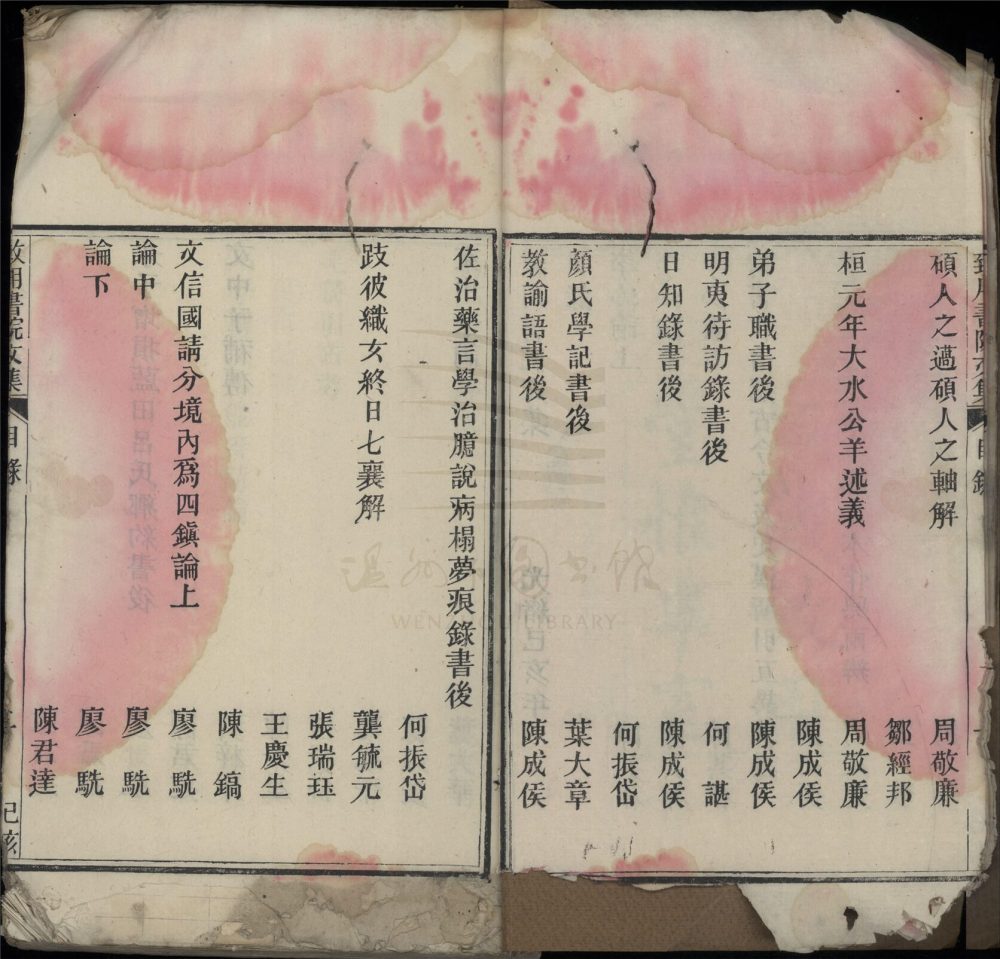 致用書院文集 目錄
碩人之薖碩人之軸解 周敬廉
鄒經邦
桓元年大水公羊述義 周敬廉
陳成侯
弟子職書後 陳成侯
明夷待訪錄書後 何諶
日知錄書後 陳成侯
何振岱
顏氏學記書後 葉大章
教諭語書後 陳成侯
佐治藥言學治臆說病榻夢痕錄書後
何振岱
跂彼織女終日七襄解 龔毓元
張瑞珏
王慶生
陳鎬
文信國請分境內爲四鎭論上 廖毓駪
論中 廖駪
論下 廖駪
陳君達
致用書院文集 目錄 己亥
溫州圖書館
WENZHOU LIBRARY